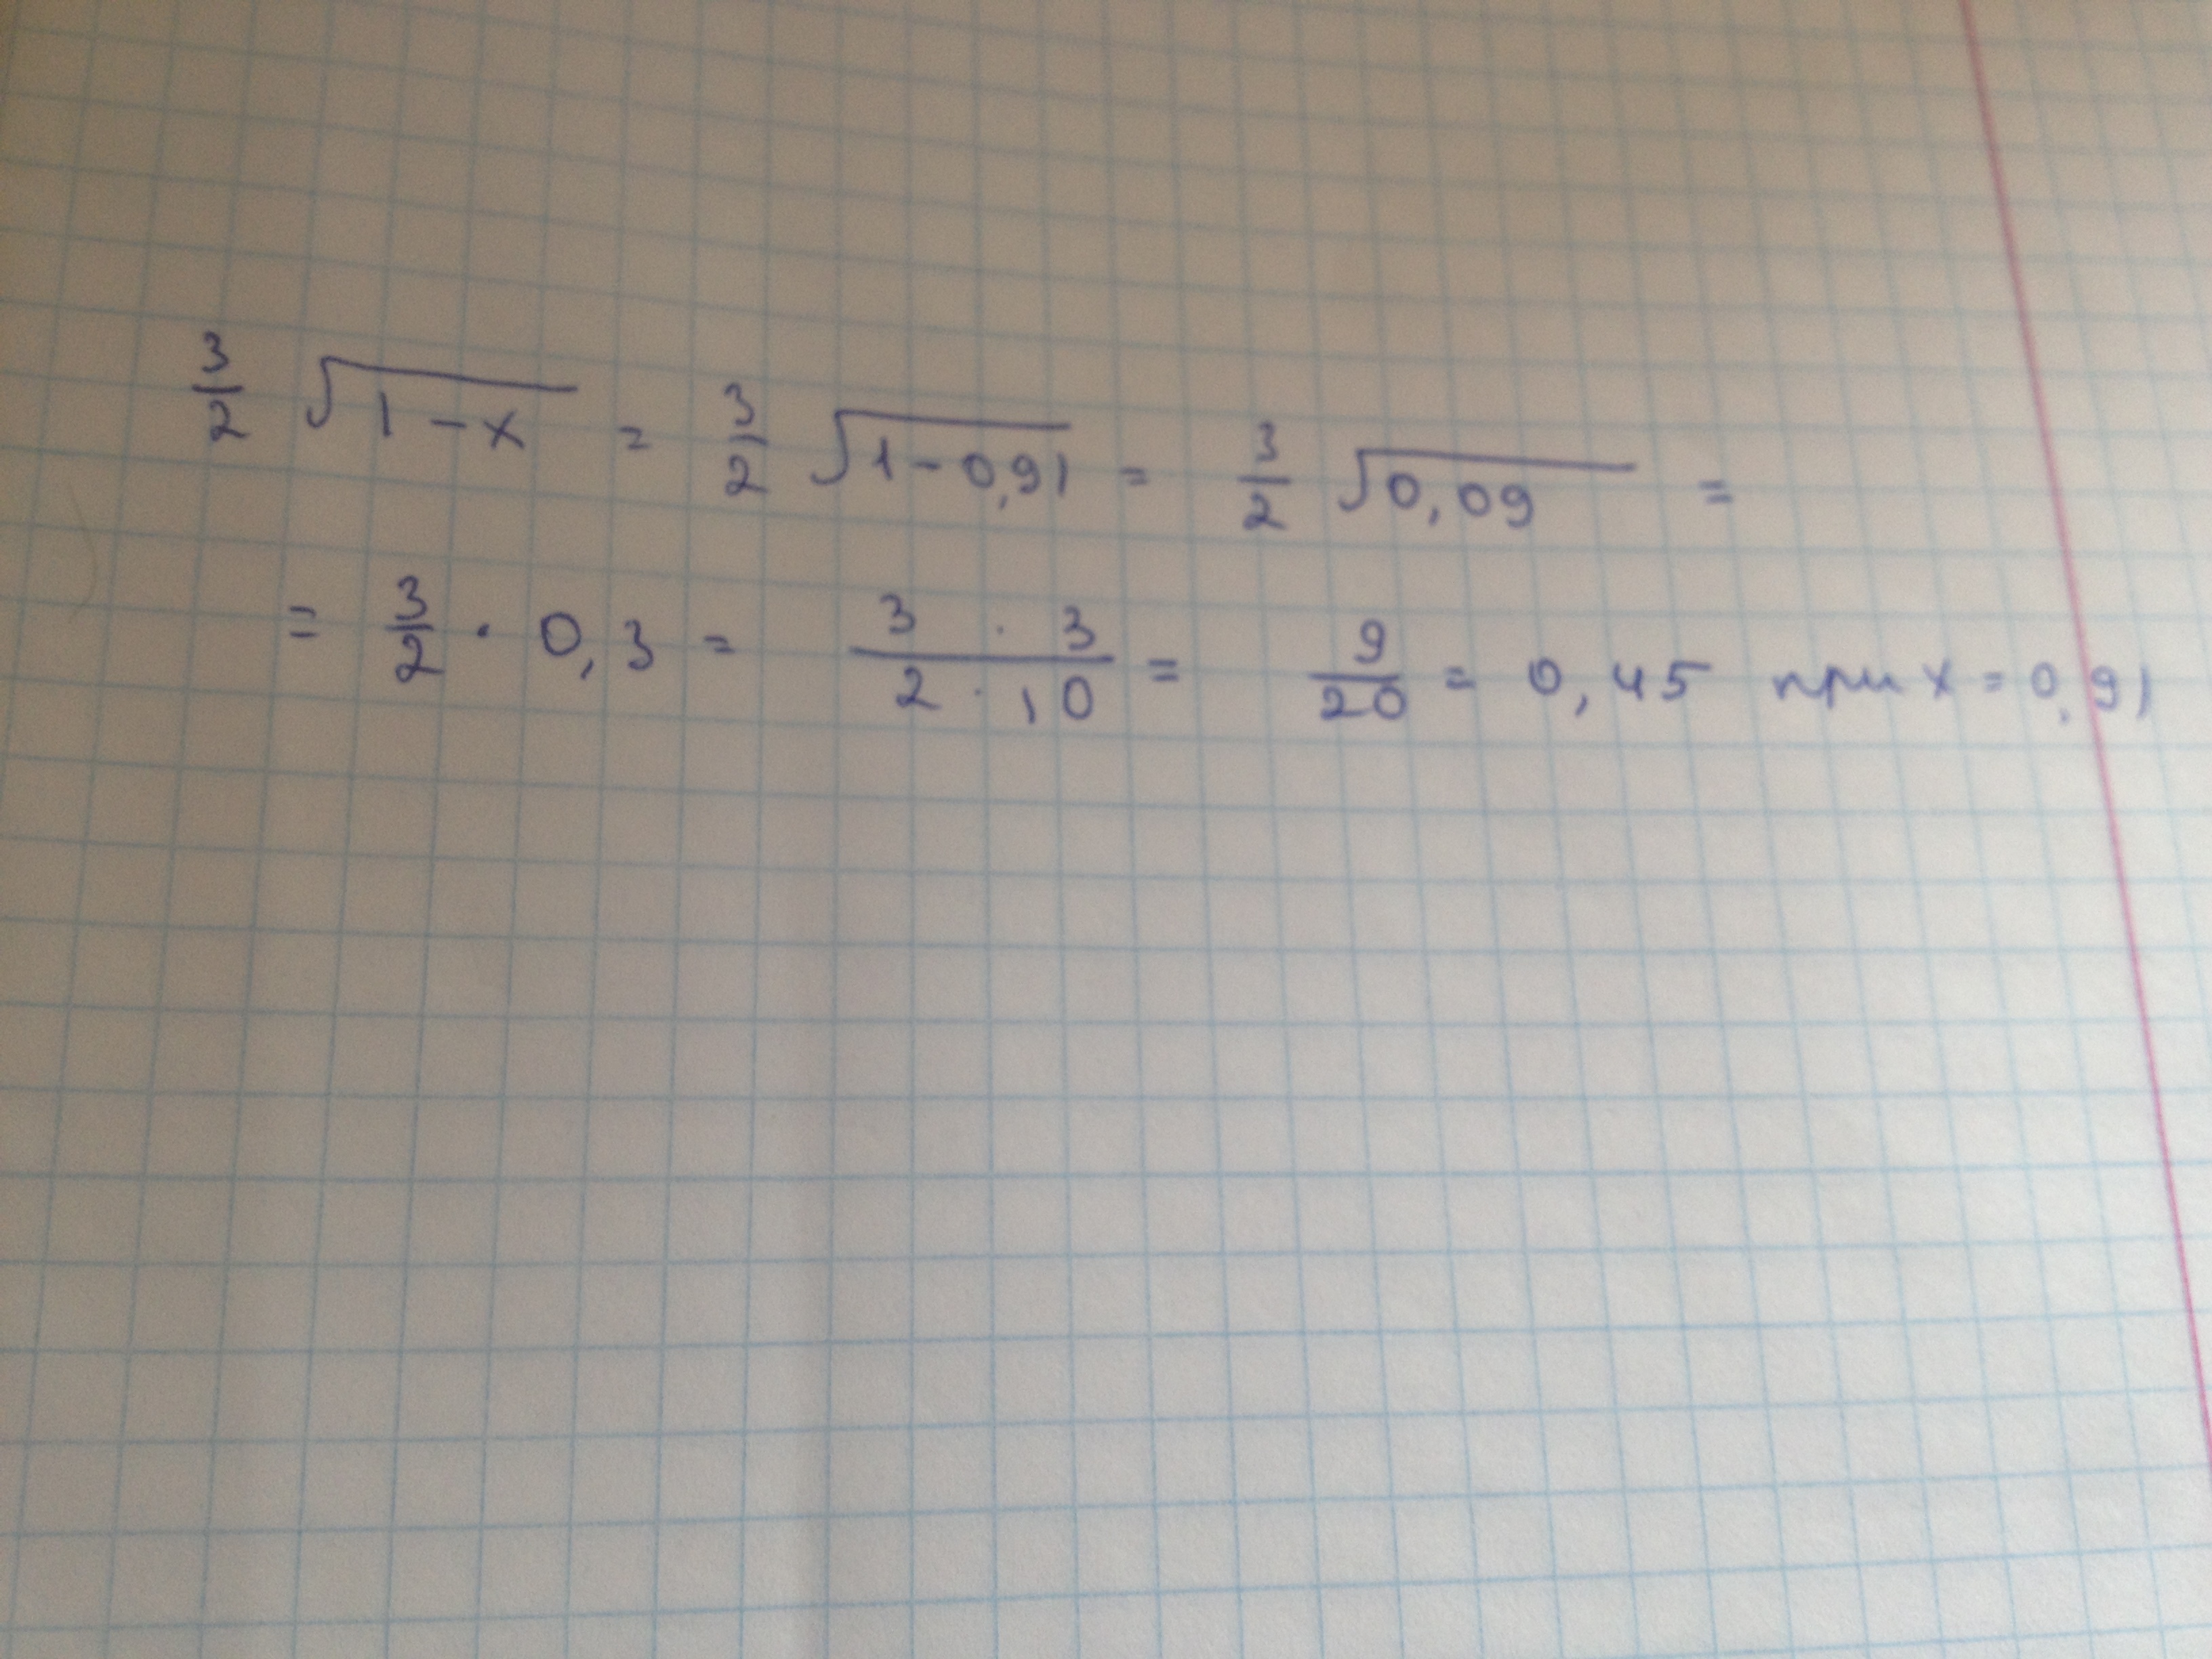 3/2 √(1 - x) = 3/2 √(1 - 0,91) = 3/2 √(0,09) =
= 3/2 · 0,3 = (3 · 3)/(2 · 10) = 9/20 = 0,45 при x = 0,91